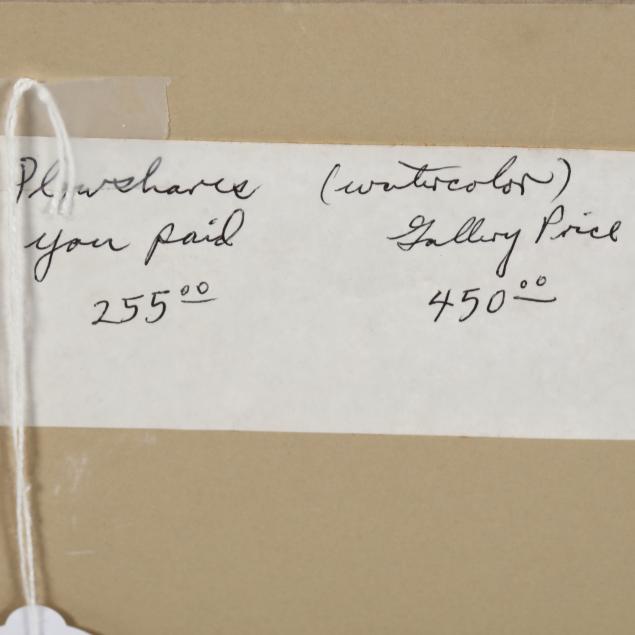 Plowshares (watercolor)
you paid Gallery Price
255.00 450.00